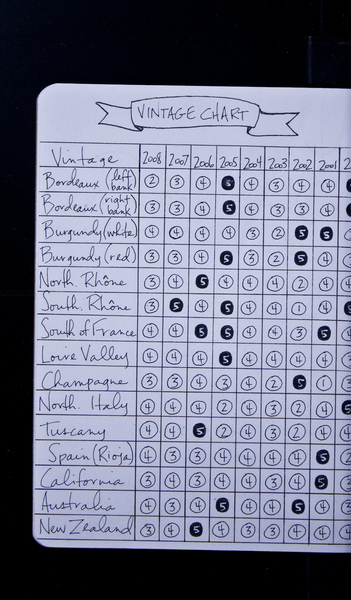 VINTAGE CHART
Vintage 2008 2007 2006 2005 2004 2003 2002 2001
Bordeaux (left bank) 2 3 4 5 4 3 4 4
Bordeaux (right bank) 3 3 4 5 4 3 3 4
Burgundy (white) 4 4 4 4 3 2 5 5
Burgundy (red) 3 3 4 5 3 2 5 4
North. Rhône 3 4 5 4 4 4 2 4
South. Rhône 3 5 4 5 4 4 1 4
South of France 4 4 5 5 4 4 3 5
Loire Valley 4 4 4 5 4 4 4 4
Champagne 3 3 3 3 4 2 5 1
North. Italy 4 4 4 2 4 3 2 4
Tuscany 4 4 5 2 4 3 2 4
Spain (Rioja) 4 3 3 4 4 4 4 5
California 4 4 3 4 4 3 4 5
Australia 4 3 4 5 4 2 5 4
New Zealand 3 4 5 4 3 3 4 4